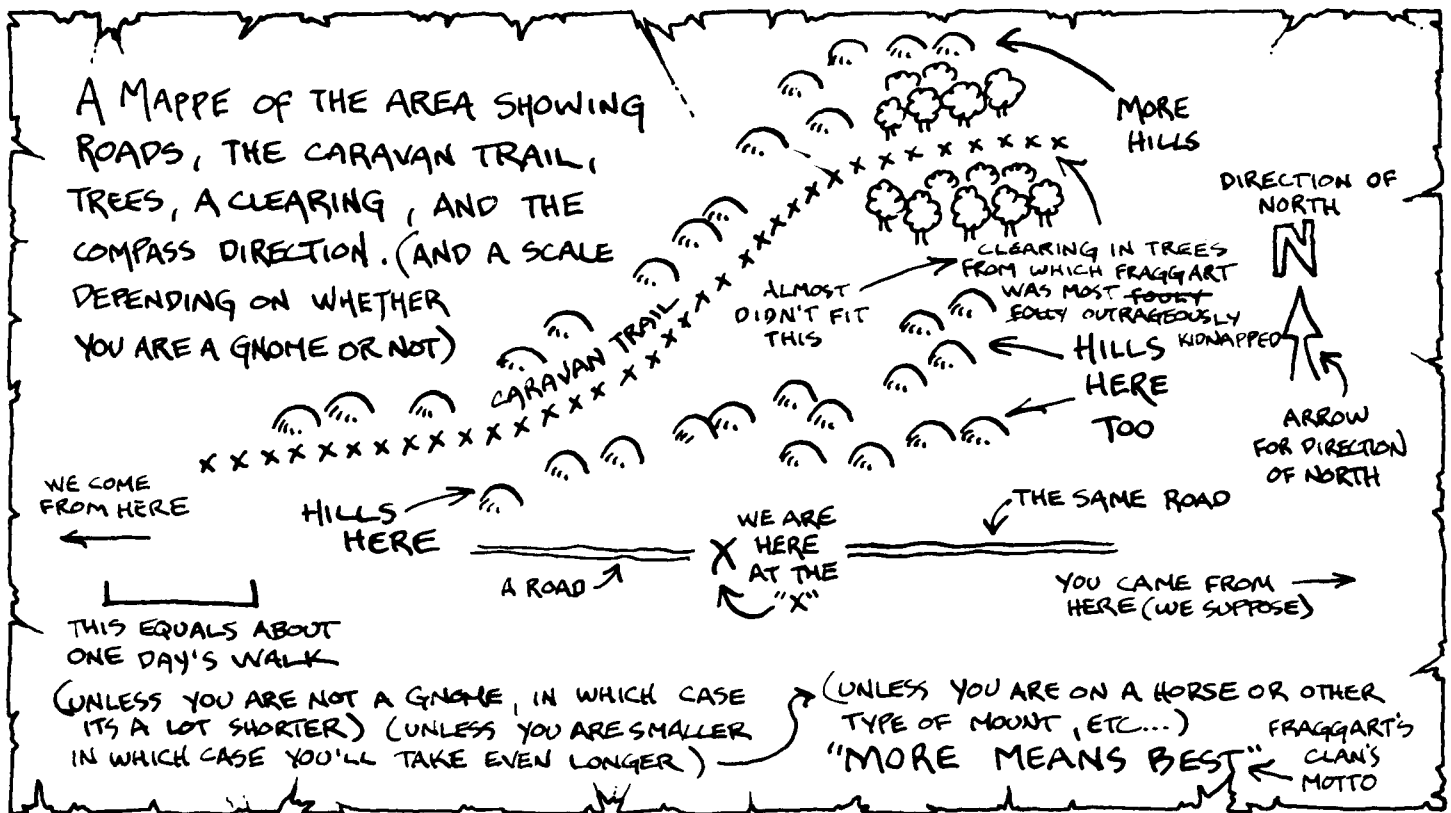 A MAPPE OF THE AREA SHOWING
ROADS, THE CARAVAN TRAIL,
TREES, A CLEARING, AND THE
COMPASS DIRECTION. (AND A SCALE
DEPENDING ON WHETHER
YOU ARE A GNOME OR NOT)
MORE
HILLS
DIRECTION OF
NORTH
N
ARROW
FOR DIRECTION
OF NORTH
CLEARING IN TREES
FROM WHICH FRAGGART
WAS MOST FOULY
FOLLY OUTRAGEOUSLY
KIDNAPPED
ALMOST
DIDN'T FIT
THIS
CARAVAN TRAIL
HILLS
HERE
TOO
WE COME
FROM HERE
HILLS
HERE
A ROAD
X
WE ARE
HERE
AT THE
"X"
THE SAME ROAD
YOU CAME FROM
HERE (WE SUPPOSE)
THIS EQUALS ABOUT
ONE DAY'S WALK
(UNLESS YOU ARE NOT A GNOME, IN WHICH CASE
ITS A LOT SHORTER) (UNLESS YOU ARE SMALLER
IN WHICH CASE YOU'LL TAKE EVEN LONGER)
(UNLESS YOU ARE ON A HORSE OR OTHER
TYPE OF MOUNT, ETC...)
"MORE MEANS BEST"
FRAGGART'S
CLAN'S
MOTTO